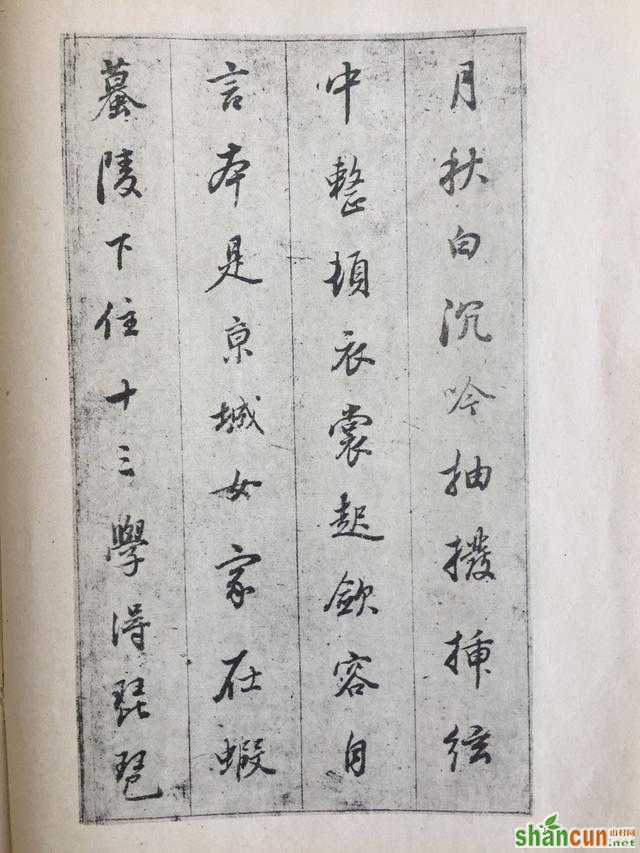 月秋白沉吟抽撥揷絃
中整頓衣裳起歛容自
言本是京城女家在蝦
蟇陵下住十三學得琵琶
shancun 山村网
.net